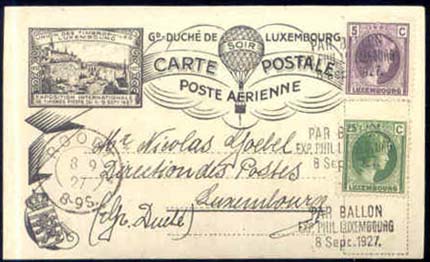 UNION DES TIMBROPHILES
LUXEMBOURG
EXPOSITION INTERNATIONALE
DE TIMBRES POSTE DU 4-9 SEPT 1927
Gd-DUCHÉ DE LUXEMBOURG
SOIR
CARTE POSTALE
POSTE AÉRIENNE
5 C
LUXEMBOURG
PAR BALLON
LUXEMBOURG
1927.
25 C
LUXEMBOURG
PAR BALLON
EXP. PHIL. LUXEMBOURG
8 Sept. 1927.
8 9
27
8-9S
Mr Nicolas Goebel
Direction des Postes
Luxembourg
(Gr. Duché)
PAR BALLON
EXP. PHIL. LUXEMBOURG
8 Sept. 1927.